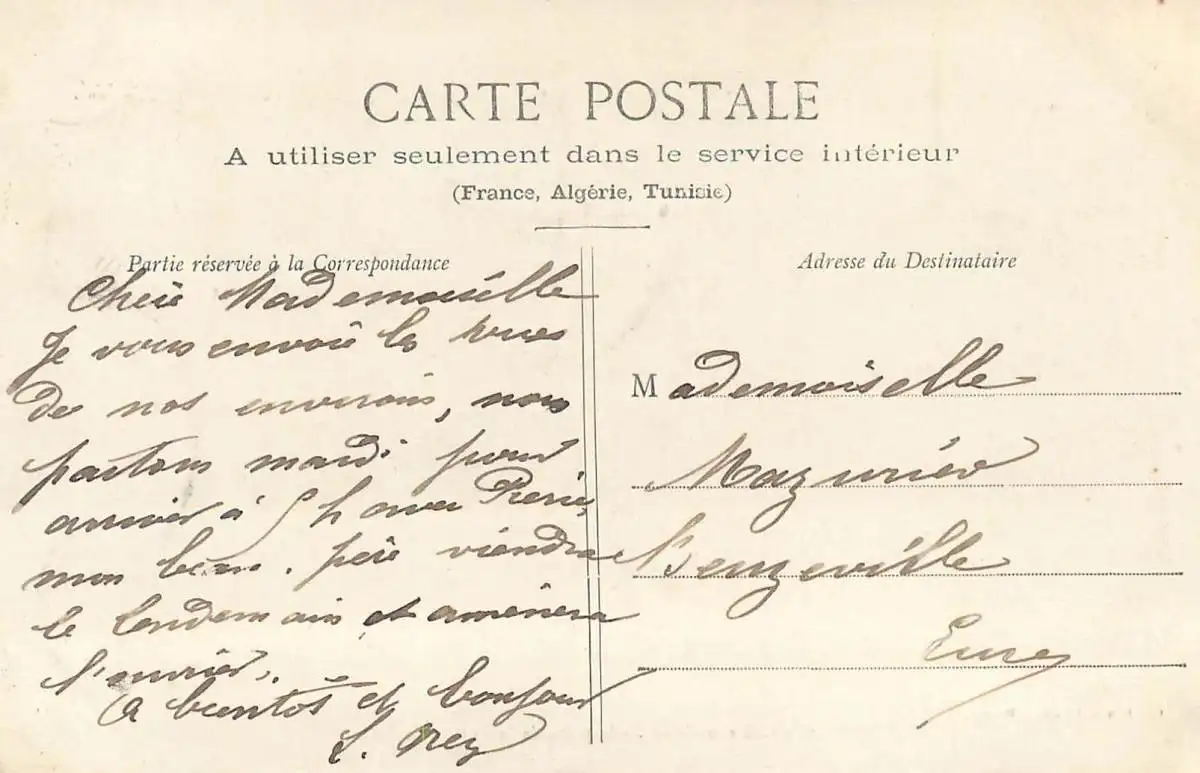 CARTE POSTALE
A utiliser seulement dans le service intérieur
(France, Algérie, Tunisie)
Partie réservée à la Correspondance
Chère Mademoiselle
Je vous envoie les vues
de nos environs, nous
partons mardi pour
arriver à 5 h avec Pierre,
mon beau-père viendra
le lendemain et amènera
l'ouvrier.
A bientôt et bonjour
Adresse du Destinataire
Mademoiselle
Mazurier
Beuzeville
Eure